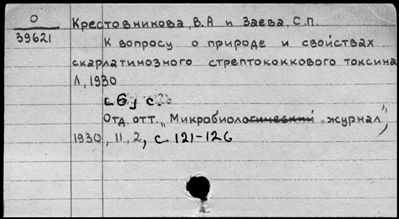 О
39621
Крестовникова, В.А и Заева, С.П.
К вопросу о природе и свойствах
скарлатинозного стрептококкового токсина
Л, 1930
с.
Отд. отт. „Микробиологический журнал",
1930, 11, 2, с. 121-126